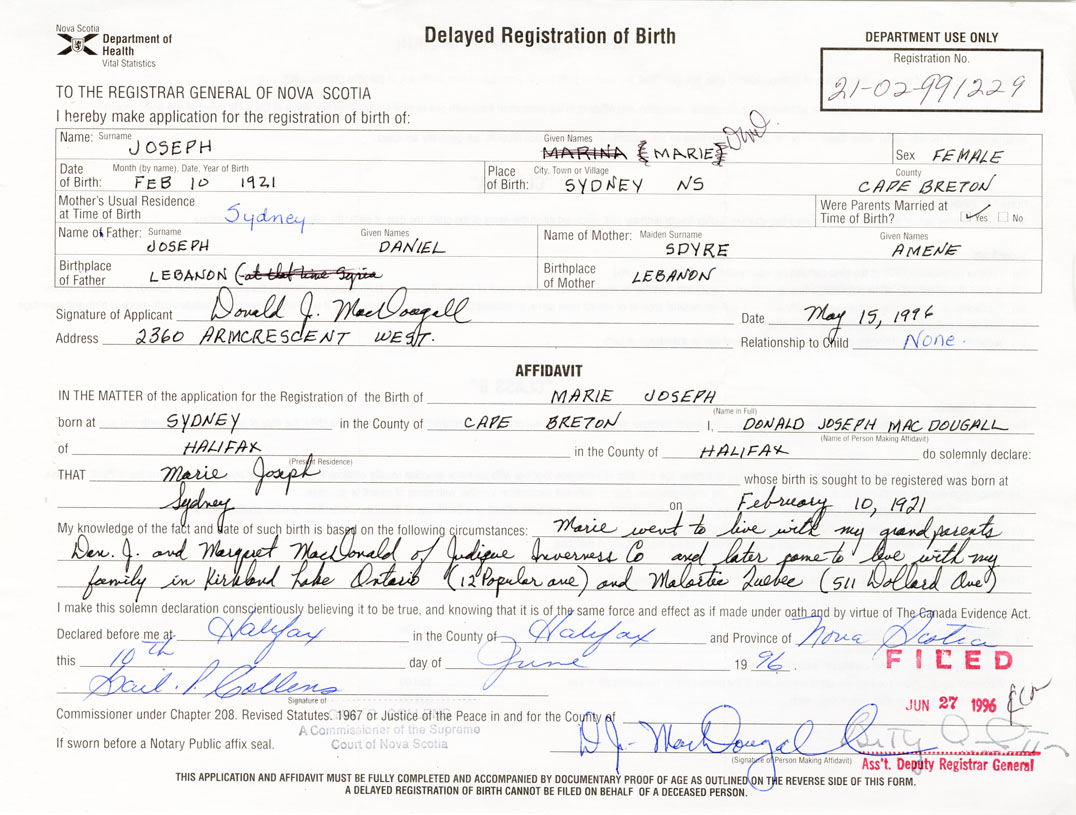 Nova Scotia
Department of
Health
Vital Statistics
Delayed Registration of Birth
DEPARTMENT USE ONLY
Registration No.
21-02-991229
TO THE REGISTRAR GENERAL OF NOVA SCOTIA
I hereby make application for the registration of birth of:
Name: Surname JOSEPH Given Names MARINA { MARIE } Sex FEMALE
Date of Birth: Month (by name), Date, Year of Birth FEB 10 1921 Place of Birth: City, Town or Village SYDNEY NS County CAPE BRETON
Mother's Usual Residence at Time of Birth Sydney Were Parents Married at Time of Birth? Yes No
Name of Father: Surname JOSEPH Given Names DANIEL Name of Mother: Maiden Surname SPYRE Given Names AMENE
Birthplace of Father LEBANON (at that time Syria Birthplace of Mother LEBANON
Signature of Applicant Donald J. MacDougall Date May 15, 1996
Address 2360 ARMCRESCENT WEST. Relationship to Child None.
AFFIDAVIT
IN THE MATTER of the application for the Registration of the Birth of MARIE JOSEPH
(Name in Full)
born at SYDNEY in the County of CAPE BRETON I, DONALD JOSEPH MACDOUGALL
(Name of Person Making Affidavit)
of HALIFAX in the County of HALIFAX do solemnly declare:
(Present Residence)
THAT Marie Joseph whose birth is sought to be registered was born at
Sydney on February 10, 1921
My knowledge of the fact and date of such birth is based on the following circumstances: Marie went to live with my grandparents
Dan. J. and Margaret MacDonald of Judique Inverness Co and later came to live with my
family in Kirkland Lake Ontario (12 Popular ave) and Malartic Quebec (511 Dollard Ave)
I make this solemn declaration conscientiously believing it to be true, and knowing that it is of the same force and effect as if made under oath and by virtue of The Canada Evidence Act.
Declared before me at Halifax in the County of Halifax and Province of Nova Scotia
this 10th day of June 1996.
FILED
Gail P Collens
Signature of
JUN 27 1996
Commissioner under Chapter 208. Revised Statutes. 1967 or Justice of the Peace in and for the County of
A Commissioner of the Supreme
Court of Nova Scotia
If sworn before a Notary Public affix seal.
D J. MacDougall
(Signature of Person Making Affidavit)
Ass't. Deputy Registrar General
THIS APPLICATION AND AFFIDAVIT MUST BE FULLY COMPLETED AND ACCOMPANIED BY DOCUMENTARY PROOF OF AGE AS OUTLINED ON THE REVERSE SIDE OF THIS FORM.
A DELAYED REGISTRATION OF BIRTH CANNOT BE FILED ON BEHALF OF A DECEASED PERSON.